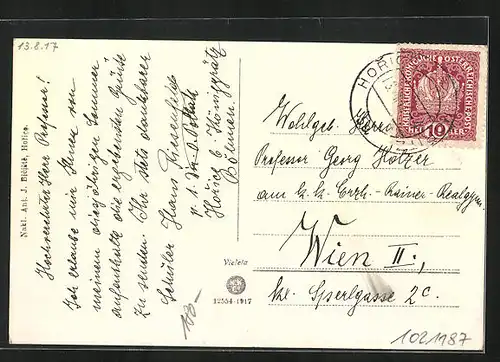 13.8.17
Hochverehrter Herr Professor!
Ich erlaube mir Ihnen von
meinem diesjährigen Sommer
aufenthalte die ergebensten Grüße
zu senden. Ihr stets dankbarer
Schüler Hans
Hořitz b. Königgrätz
Böhmen.
Nakl. Ant. J. Hořice.
Vieleta
12554-1917
HOŘIC
KAISERLICHE KÖNIGLICHE ÖSTERREICHISCHE POST
10 HELLER
Wohlgeb. Herrn
Professor Georg Holzer
am k. k. Erzh.-Rainer-Realgym.
Wien II.,
kl. Sperlgasse 2c.
1021187